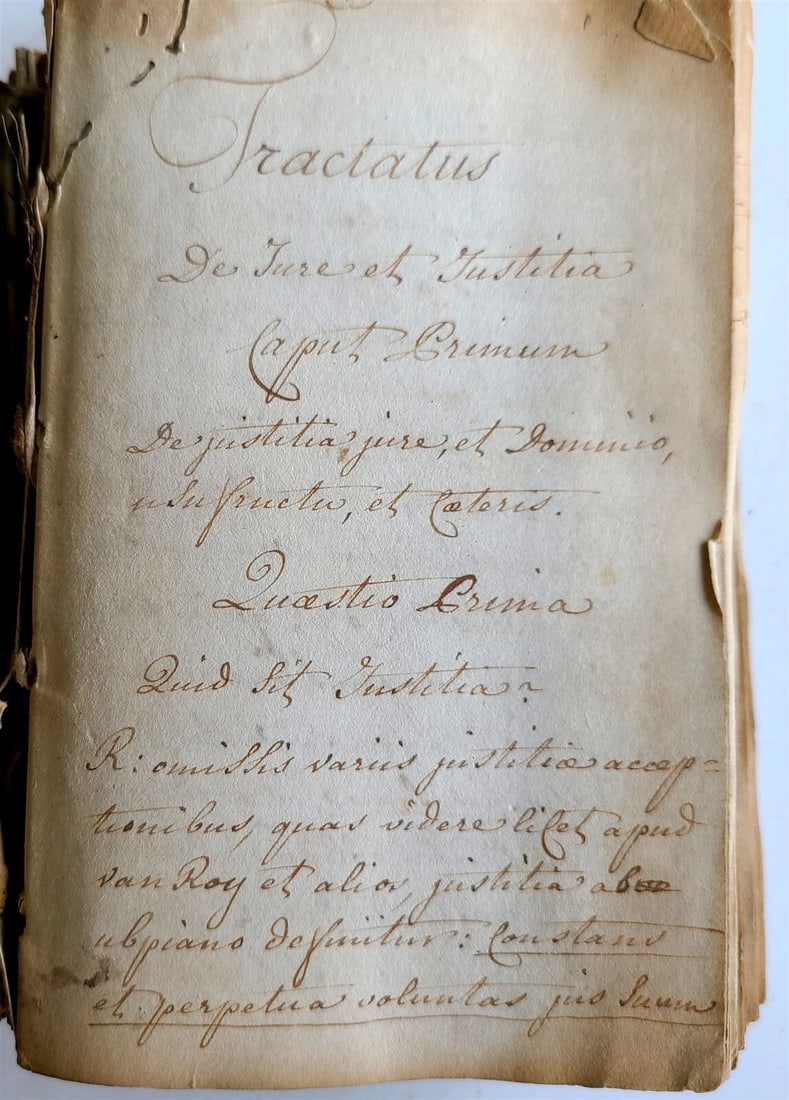 Tractatus
De Jure et Justitia
Caput Primum
De justitia, jure, et Dominio,
usufructu, et Cæteris.
Quæstio Prima
Quid Sit Justitia?
R: omissis variis justitiæ accep=
tionibus, quas videre licet apud
van Roy et alios, justitia ab
ulpiano definitur: Constans
et perpetua voluntas jus Suum